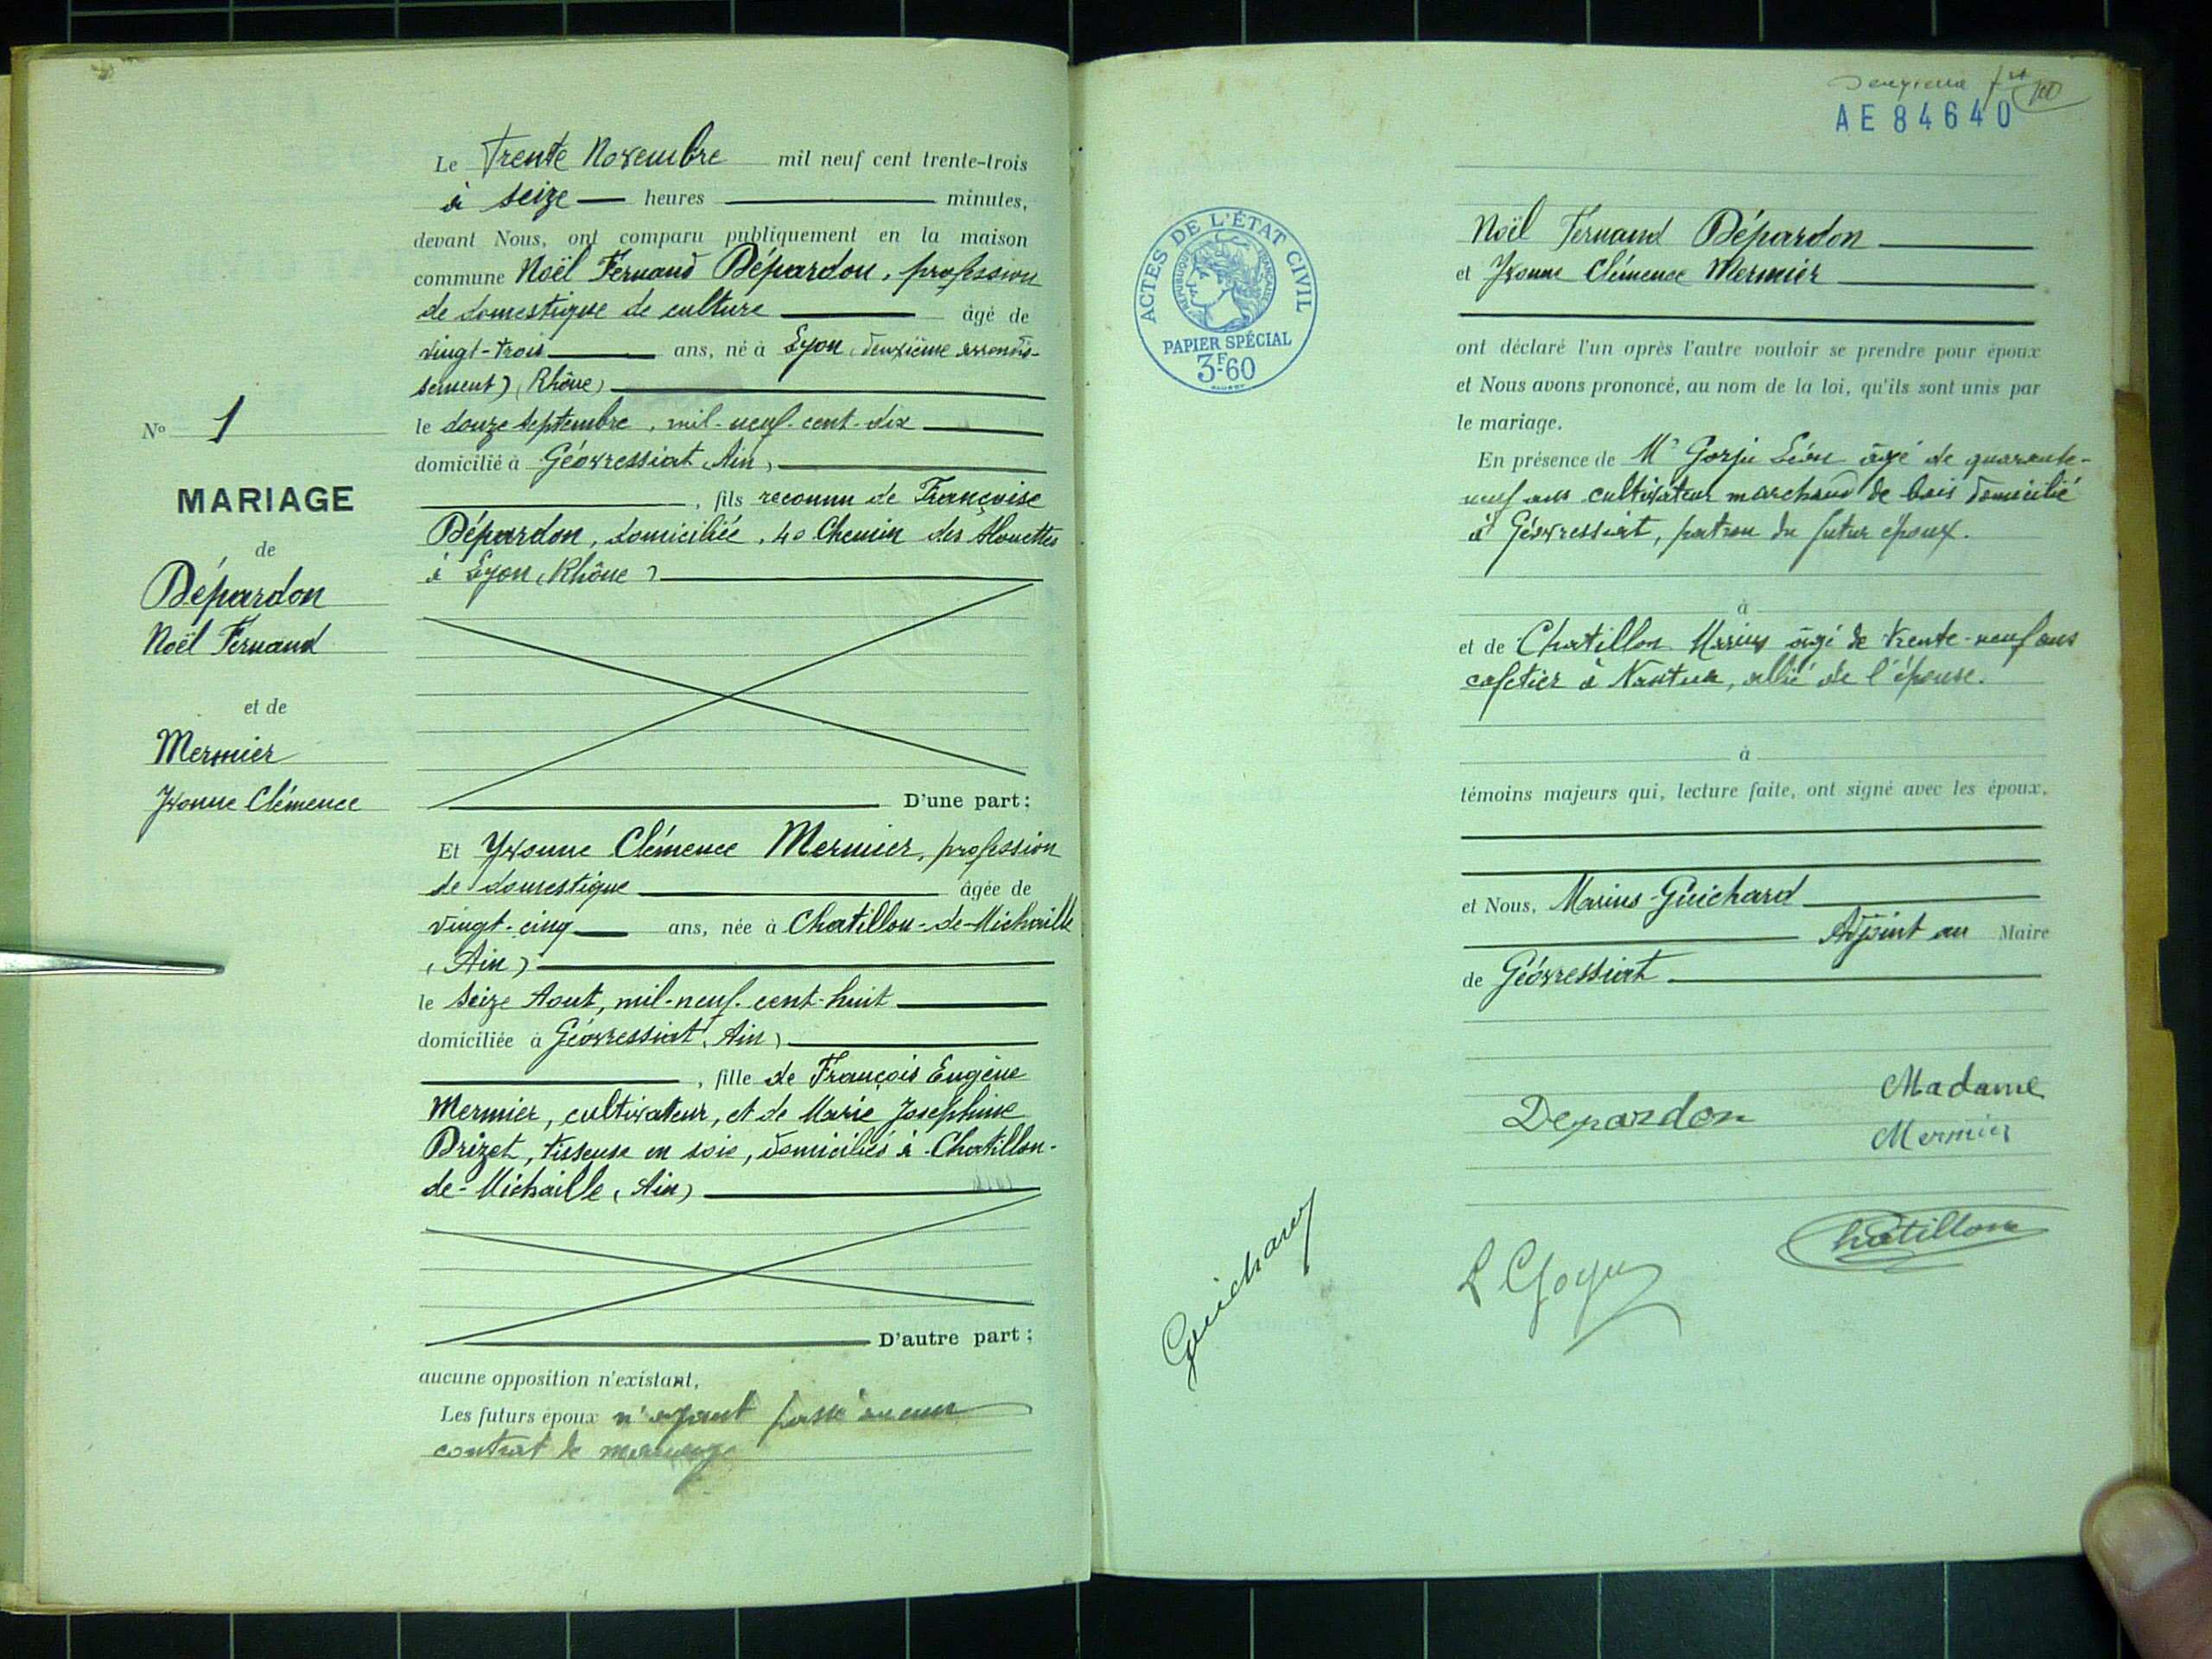 Le Trente Novembre mil neuf cent trente-trois
à seize heures minutes,
devant Nous, ont comparu publiquement en la maison
commune Noël Fernand Dépardon, profession
de domestique de culture âgé de
vingt-trois ans, né à Lyon (deuxième arrondis-
sement) (Rhône)
le douze septembre, mil-neuf-cent-dix
domicilié à Géovressiat (Ain)
, fils reconnu de Françoise
Dépardon, domiciliée, 40 Chemin des Alouettes
à Lyon (Rhône)
D'une part;
Et Yvonne Clémence Mermier, profession
de domestique âgée de
vingt-cinq ans, née à Chatillon-de-Michaille
(Ain)
le seize Aout, mil-neuf-cent-huit
domiciliée à Géovressiat (Ain)
, fille de François Eugène
Mermier, cultivateur, et de Marie Josephine
Brizet, tisseuse en soie, domiciliés à Chatillon-
de-Michaille (Ain)
D'autre part;
aucune opposition n'existant,
Les futurs époux n'ayant passé aucun
contrat de mariage
No 1
MARIAGE
de
Dépardon
Noël Fernand
et de
Mermier
Yvonne Clémence
Deuxième
AE 84640
ACTES DE L'ÉTAT CIVIL
RÉPUBLIQUE FRANÇAISE
PAPIER SPÉCIAL
3F60
Noël Fernand Dépardon
et Yvonne Clémence Mermier
ont déclaré l'un après l'autre vouloir se prendre pour époux
et Nous avons prononcé, au nom de la loi, qu'ils sont unis par
le mariage.
En présence de Mr Gorju Léon âgé de quarante-
neuf ans cultivateur marchand de bois domicilié
à Géovressiat, patron du futur époux.
à
et de Chatillon Marius âgé de trente-neuf ans
cafetier à Nantua, allié de l'épouse.
à
témoins majeurs qui, lecture faite, ont signé avec les époux,
et Nous, Marius Guichard
Adjoint au Maire
de Géovressiat
Depardon
Madame
Mermier
Châtillon
Guichard